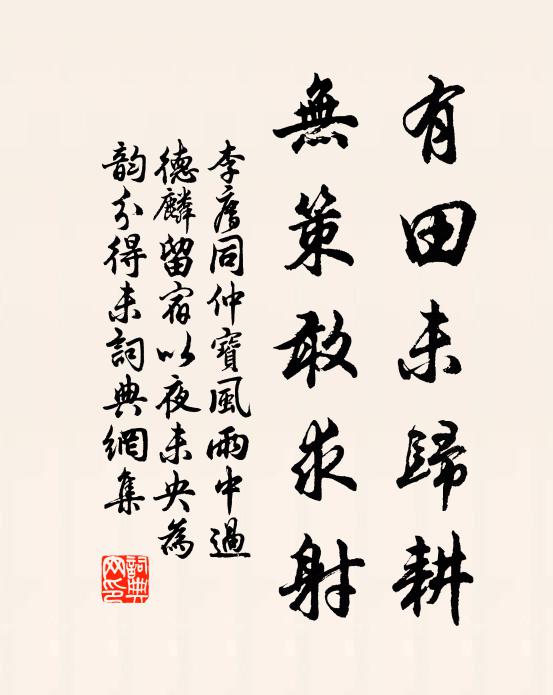 有田未歸耕
無策敢求射
李廌同仲寶風雨中過
德麟留宿以夜未央為
韵分得未詞典網集
詞典網印